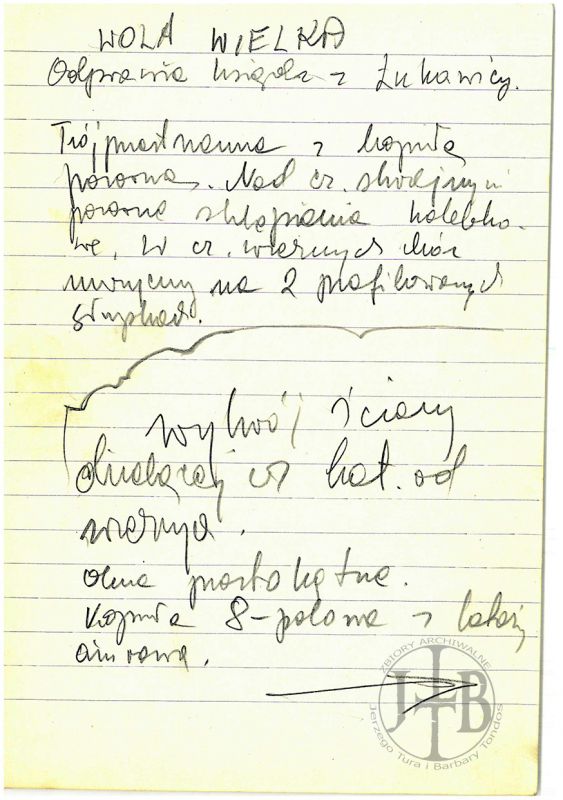 WOLA WIELKA
Odprawia ksiądz z Łukawicy.
Trójprzestrzenna z kopułą
pozorną. Nad cz. skrajnymi
pozorne sklepienia kolebko-
we, w cz. wiernych chór
muzyczny na 2 profilowanych
słupkach.
wykrój ściany
dzielącej cz bab. od
wiernych.
okna prostokątne.
Kopuła 8-polowa z
ZBIORY ARCHIWALNE
JTBT
Jerzego Tura i Barbary Tondos